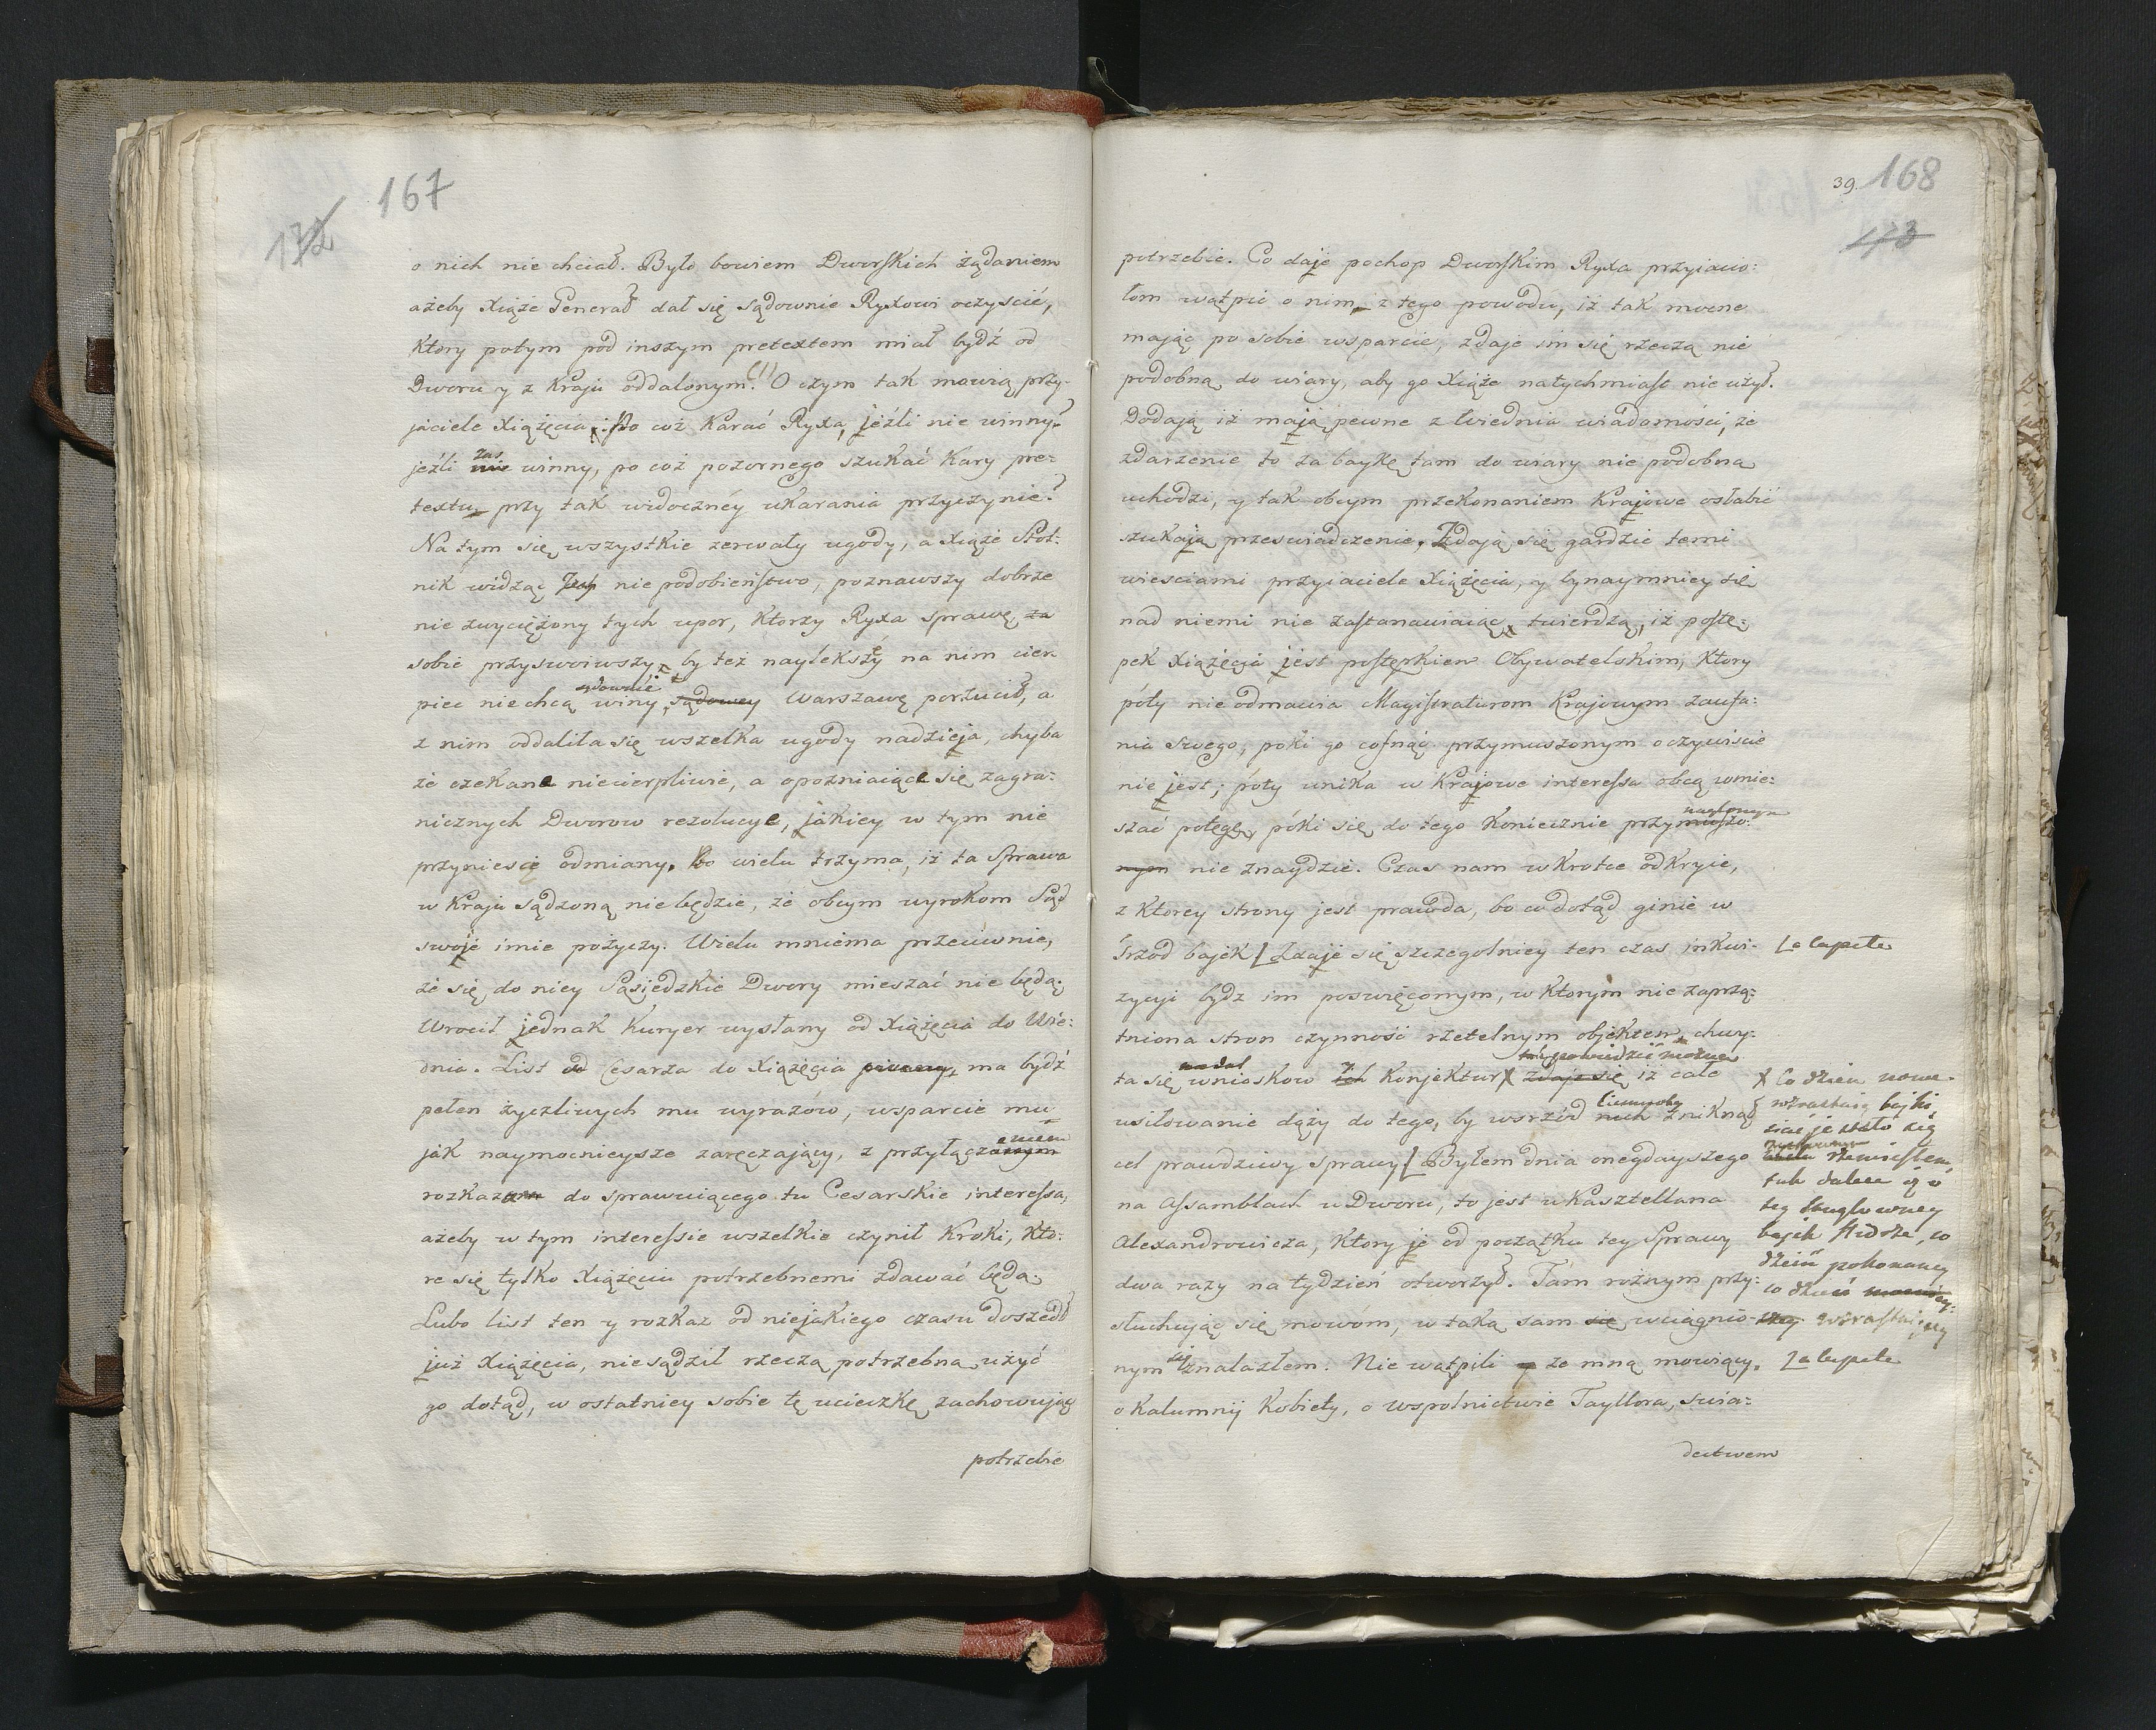 167
172
o nich nie chciał. Było bowiem Dworskich żądaniem
ażeby Xiąże Generał dał się sądownie Ryxowi oczyścić,
Ktory potym pod inszym pretextem miał bydź od
Dworu y z Kraju oddalonym. O czym tak mowią przy-
jaciele Xiążęcia: Po coż Karać Ryxa, jeźli nie winny?
jeźli zas winny, po coż pozornego szukać Kary pre-
textu przy tak widoczney ukarania przyczynie?
Na tym się wszystkie zerwały ugody, a Xiąże Stol-
nik widząc nie podobieństwo, poznawszy dobrze
nie zwyciężony tych upor, Ktorzy Ryxa Sprawę za
sobie przyswoiwszy, by też naylekszy na nim cier
piec nie chcą winy, sądowey Warszawę porzucił, a
z nim oddaliła się wszelka ugody nadzieja, chyba
że czekane niecierpliwie, a opozniaiące się zagra-
nicznych Dworow rezolucye, jakiey w tym nie
przyniesię odmiany. Bo wielu trzyma, iż ta Sprawa
w Kraju sądzoną nie będzie, że obcym wyrokom Sąd
swoje imie pożyczy. Wielu mniema przeciwnie,
że się do niey Sąsiedzkie Dwory mieszać nie będą.
Wrocił jednak Kuryer wysłany od Xiążęcia do Wie-
dnia. List od Cesarza do Xiążęcia pisany, ma bydź
pełen życzliwych mu wyrazów, wsparcie mu
jak naymocnieysze zaręczający, z przyłączonym
rozkazem do sprawuiącego tu Cesarskie interessa,
ażeby w tym interessie wszelkie czynił Kroki, Kto-
re się tylko Xiążęciu potrzebnemi zdawać będą.
Lubo list ten y rozkaz od niejakiego czasu doszedł
już Xiążęcia, nie sądził rzeczą potrzebną użyć
go dotąd, w ostatniey sobie tę ucieczkę zachowując
potrzebie
39. 168
173
potrzebie. Co daje pochop Dworskim Ryxa przyiacio-
łom wątpić o nim, z tego powodu, iż tak mocne
mając po sobie wsparcie, zdaje im się rzeczą nie
podobną do wiary, aby go Xiąże natychmiast nie użył.
Dodają iż mają pewne z Wiednia wiadomości, że
zdarzenie to za baykę tam do wiary nie podobną
uchodzi, y tak obcym przekonaniem Krajowe osłabić
szukają przeswiadczenie. Zdają się gardzić temi
wiesciami przyiaciele Xiążęcia, y bynaymniey się
nad niemi nie zastanawiaiąc, twierdzą, iż postę-
pek Xiążęcia jest postępkiem Obywatelskim, Ktory
póty nie odmawia Magistraturom Krajowym zaufa-
nia swego, poki go cofnąć przymuszonym oczywiscie
nie jest; póty unika w Krajowe interessa obcą wmie-
naglonym
szać potęgę, póki się do tego Koniecznie przymuszo-
nym nie znaydzie. Czas nam wkrotce odkryie,
z Ktorey strony jest prawda, bo co dotąd ginie w
srzod bajek [Zdaje się szczegolniey ten czas inkwi- [a capite
zycyi bydz im poswięconym, w Ktorym nie zaprzą-
tniona stron czynność rzetelnym objektem, chwy-
tak powiedzieć można
ta się wnioskow Ich Konjektur X zdaje się iż całe
usiłowanie dąży do tego, by wsrzód nich zniknął
cel prawdziwy sprawy [Byłem dnia onegdayszego
na Assamblach u Dworu, to jest u Kasztellana
Alexandrowicza, Ktory je od początku tey Sprawy
dwa razy na tydzień otworzył. Tam rożnym przy-
słuchując się mowóm, w taką sam się wciągnio-
nym się znalazłem. Nie wątpili ze mną mowiący,
o Kalumnij Kobiety, o wspolnictwie Tayllora, swia-
X Co dzien nowe
wzrastaią bajki,
siac je stało się
rzemiosłem,
tak dalece iż o
tey stugłowney
bajek Hidrze, co
dzień pokonaney
co dzień
wzrastaiącey
[a capite
dectwem